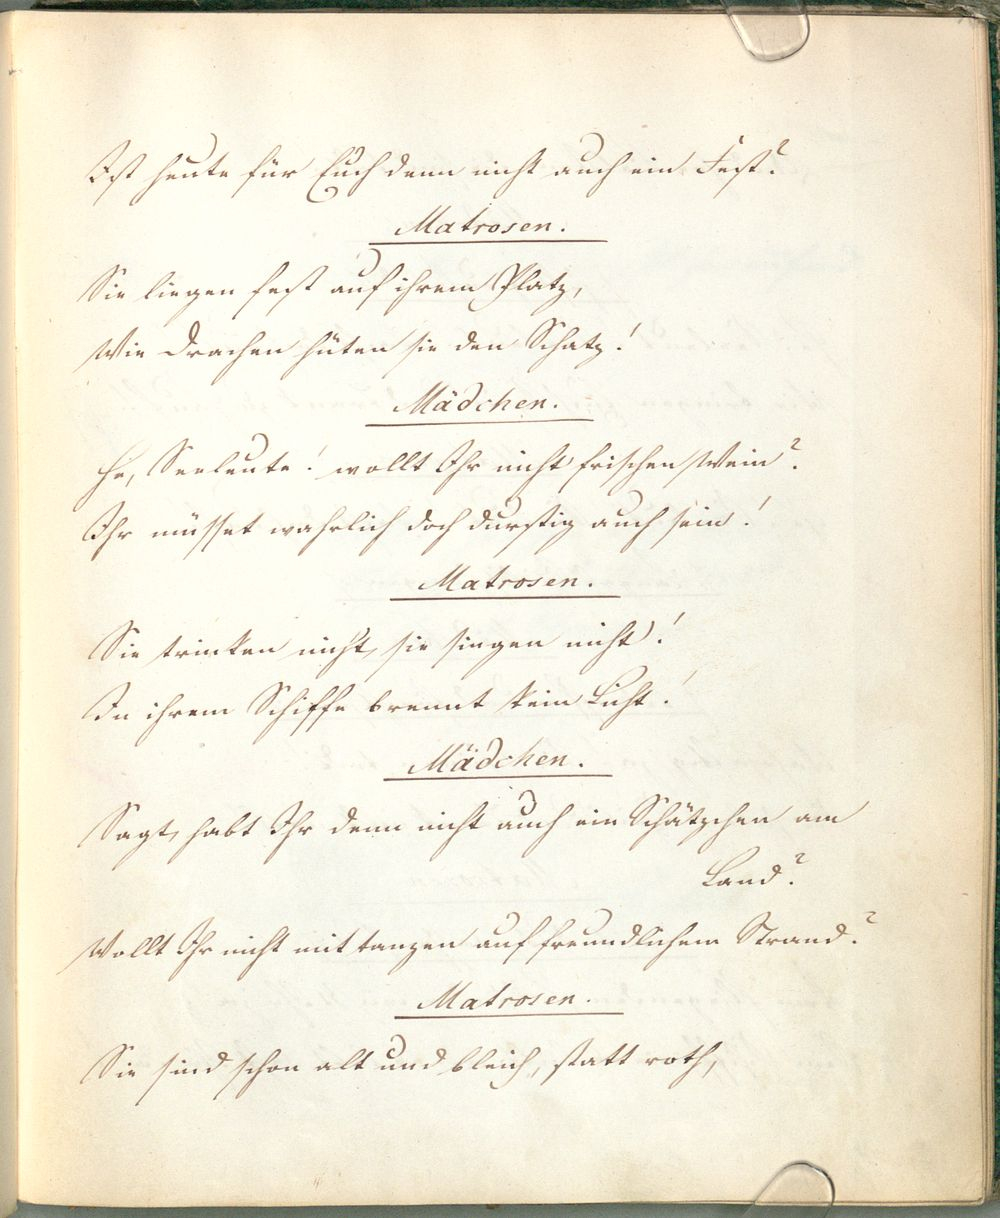 Ist heute für Euch denn nicht auch ein Fest?
Matrosen.
Sie liegen fest auf ihrem Platz,
Wie Drachen hüten sie den Schatz!
Mädchen.
He, Seeleute! wollt Ihr nicht frischen Wein?
Ihr müsset wahrlich doch durstig auch sein!
Matrosen.
Sie trinken nicht, sie singen nicht!
In ihrem Schiffe brennt kein Licht!
Mädchen.
Sagt, habt Ihr denn nicht auch ein Schätzchen am
Land?
Wollt Ihr nicht mit tanzen auf freundlichem Strand?
Matrosen.
Sie sind schon alt und bleich, statt roth,